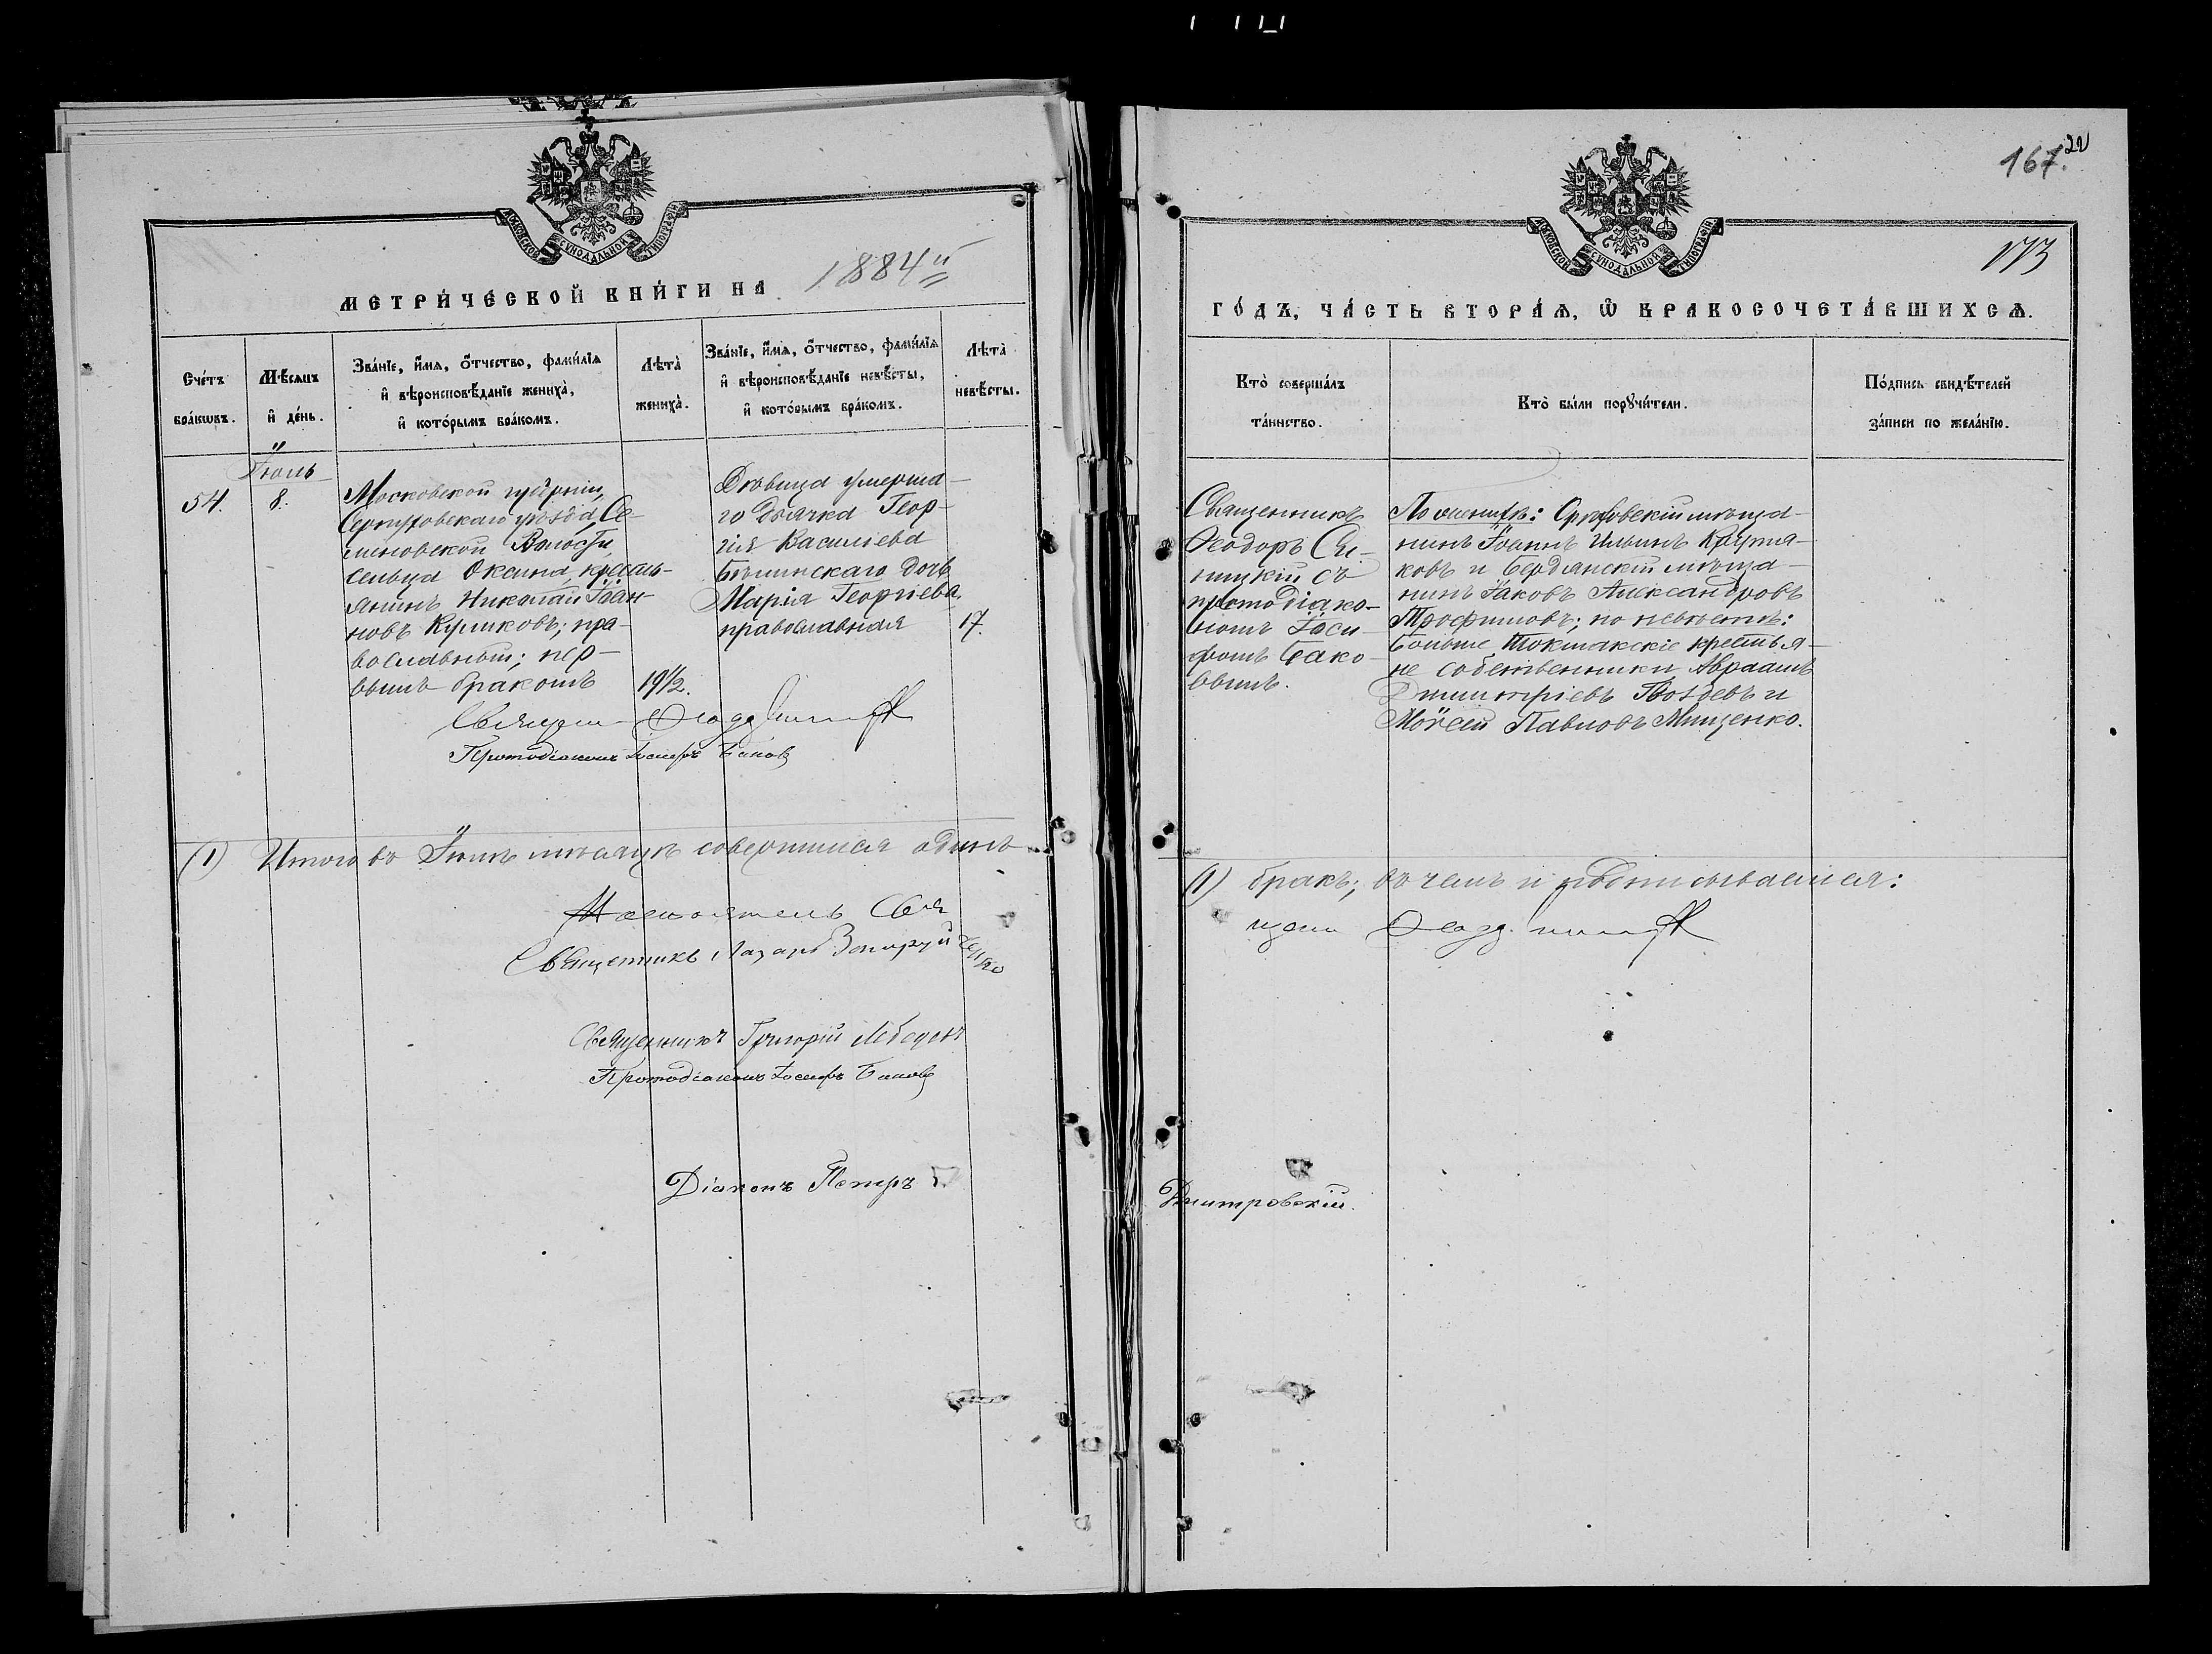 МОСКОВСКОЙ СУНОДАЛЬНОЙ ТИПОГРАФІИ
МЕТРИЧЕСКОЙ КНИГИ НА 1884
Счетъ браковъ.
Мѣсяцъ и день.
Званіе, имя, отчество, фамилія и вѣроисповѣданіе жениха, и которымъ бракомъ.
Лѣта жениха.
Званіе, имя, отчество, фамилія и вѣроисповѣданіе невѣсты, и которымъ бракомъ.
Лѣта невѣсты.
54.
Іюль
8.
Московской губерніи,
Серпуховскаго уѣзда Се-
меновской Волости,
сельца Оксина, кресть-
янинъ Николай Іоан-
новъ Куликовъ; пра-
вославный; пер-
вымъ бракомъ
19½.
Дѣвица умерша-
го Дьячка Геор-
гія Васильева
Бѣлинскаго дочь
Марія Георгіева,
православная
17.
Протодіаконъ Іосифъ Баковъ
(1) Итого въ Іюлѣ мѣсяцѣ совершился одинъ
Настоятель Свя
Священникъ Лазарь
Священникъ Григорій Лебедевъ
Протодіаконъ Іосифъ Баковъ
Діаконъ Петръ
167.
173
МОСКОВСКОЙ СУНОДАЛЬНОЙ ТИПОГРАФІИ
ГОДЪ, ЧАСТЬ ВТОРАЯ, Ѿ БРАКОСОЧЕТАВШИХСЯ.
Кто совершалъ таинство.
Кто были поручители.
Подпись свидѣтелей записи по желанію.
Священникъ
Ѳеодоръ Си-
ницкій съ
протодіако-
номъ Іоси-
фомъ Бако-
вымъ.
По женихѣ: Орѣховскій мѣща-
нинъ Іоаннъ Ильинъ
и Бердянскій мѣща-
нинъ Іаковъ Александровъ
Трофимовъ; по невѣстѣ:
Больше Токмакскіе крестья-
не собственники Авраамъ
Димитріевъ Гвоздевъ и
Моисей Павловъ Мищенко.
(1) бракъ; въ чемъ и подписываемся:
Дмитровскій.